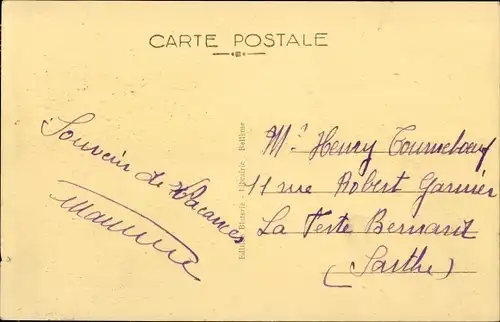 CARTE POSTALE
Souvenir de Vacances
Maurice
Mr Henry Tourneboeuf
11 rue Robert Garnier
La Ferte Bernard
(Sarthe)
Librairie, Bellême